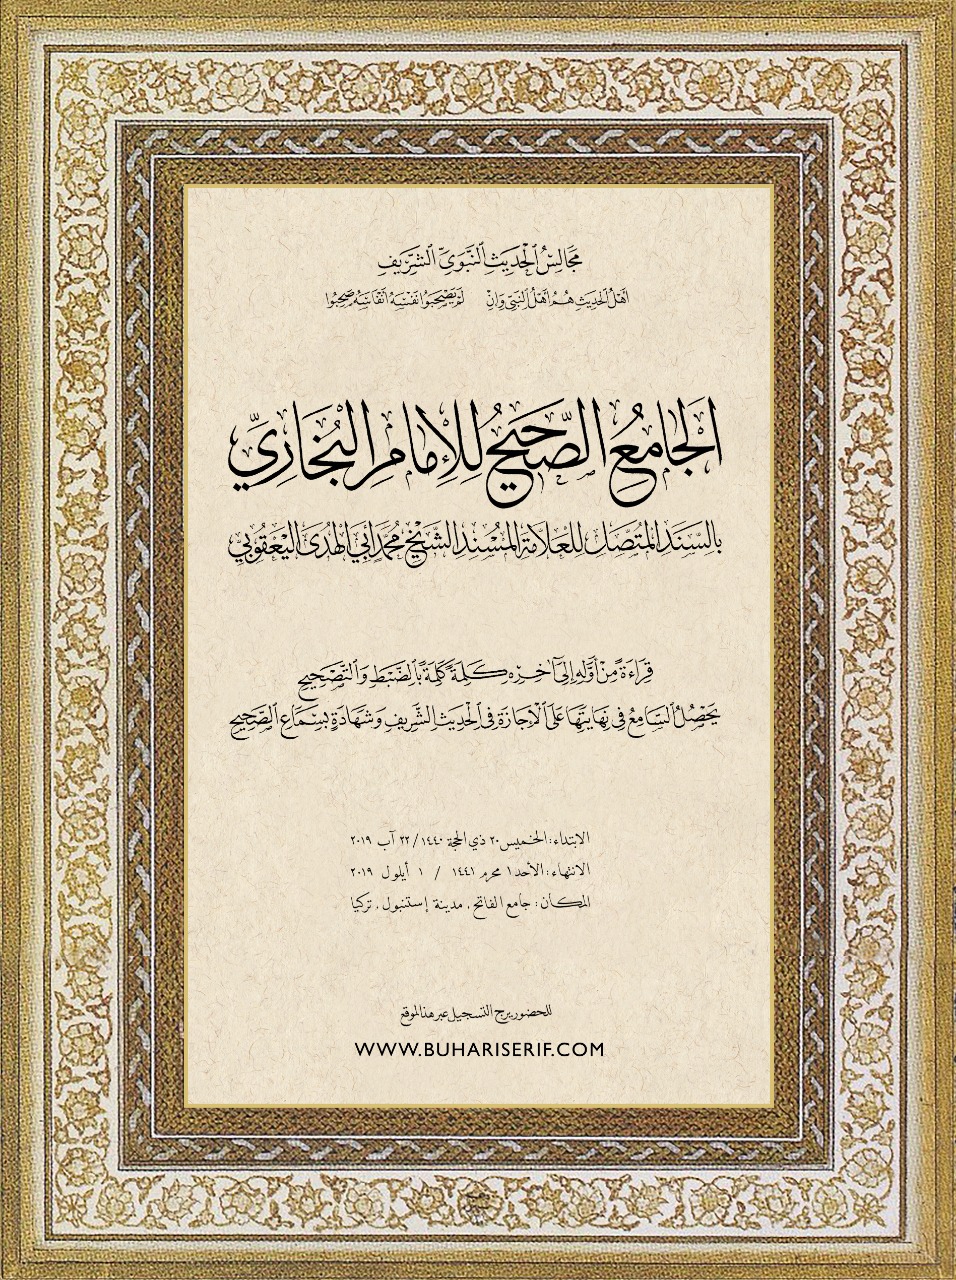 مَجَالِسُ الْحَدِيثِ النَّبَوِيِّ الشَّرِيفِ
أَهْلُ الْحَدِيثِ هُمُ أَهْلُ النَّبِيِّ وَإِنْ لَمْ يَصْحَبُوا نَفْسَهُ أَنْفَاسَهُ صَحِبُوا
الْجَامِعُ الصَّحِيحُ لِلْإِمَامِ الْبُخَارِيِّ
بِالسَّنَدِ الْمُتَّصِلِ لِلْعَلَّامَةِ الْمُسْنِدِ الشَّيْخِ مُحَمَّدٍ أَبِي الْهُدَى الْيَعْقُوبِيِّ
قِرَاءَةً مِنْ أَوَّلِهِ إِلَىٰ آخِرِهِ كَلِمَةً كَلِمَةً بِالضَّبْطِ وَالتَّصْحِيحِ
يَحْصُلُ السَّامِعُ فِي نِهَايَتِهَا عَلَى الْإِجَازَةِ فِي الْحَدِيثِ الشَّرِيفِ وَشَهَادَةٍ بِسَمَاعِ الصَّحِيحِ
الابتداء: الخميس ٢٠ ذي الحجة ١٤٤٠ / ٢٢ آب ٢٠١٩
الانتهاء: الأحد ١ محرم ١٤٤١ / ١ أيلول ٢٠١٩
المكان: جامع الفاتح، مدينة إستنبول، تركيا
للحضور يرجى التسجيل عبر هذا الموقع
WWW.BUHARISERIF.COM